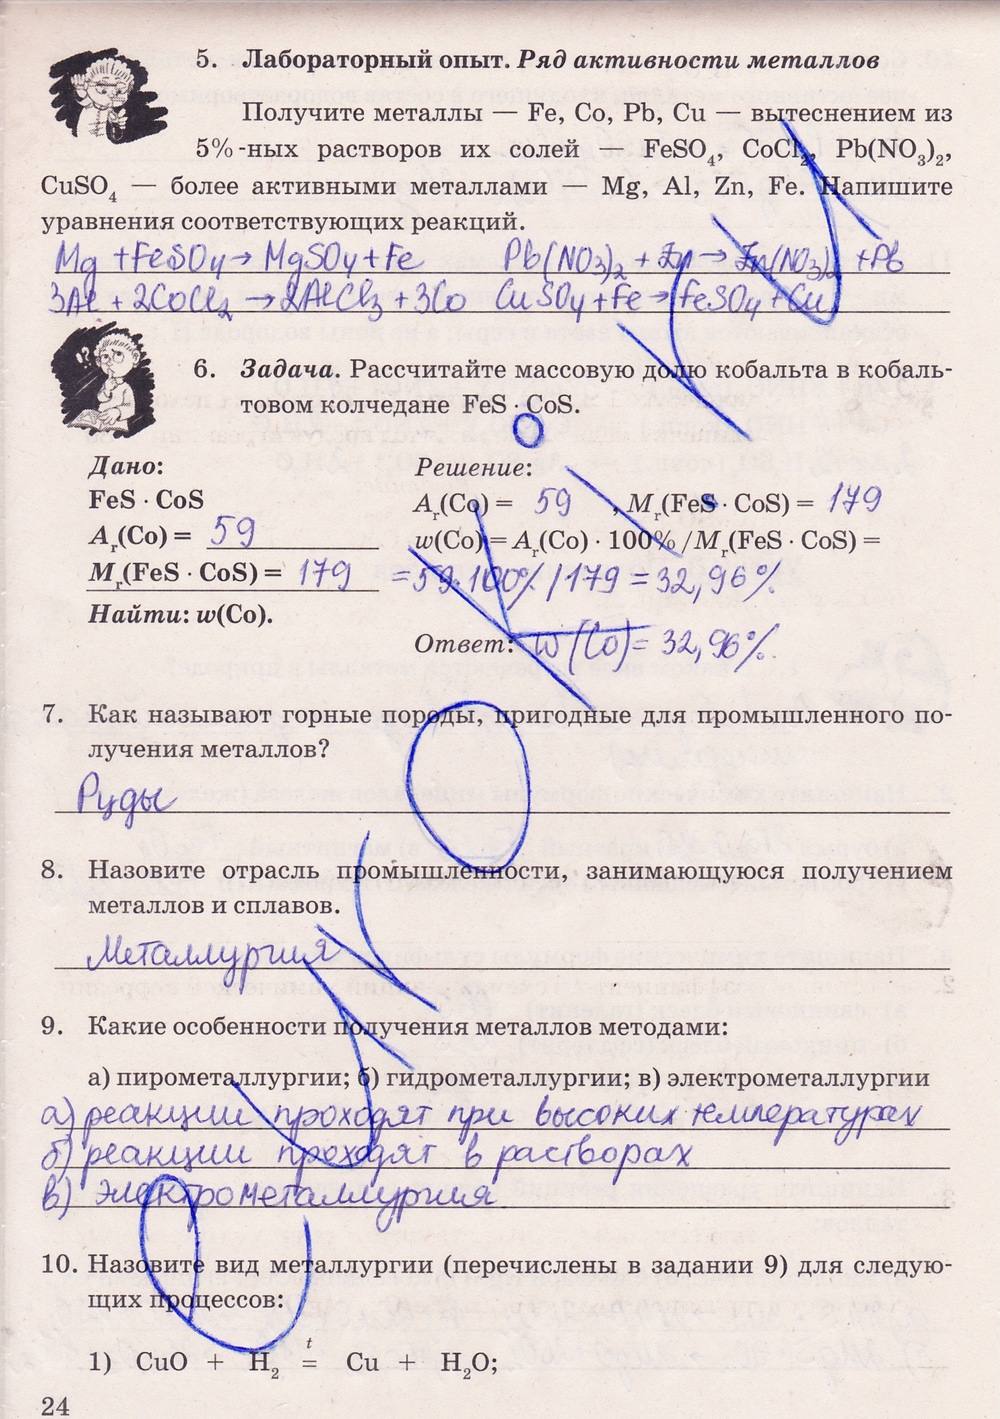 5. Лабораторный опыт. Ряд активности металлов
Получите металлы — Fe, Co, Pb, Cu — вытеснением из
5%-ных растворов их солей — FeSO₄, CoCl₂, Pb(NO₃)₂,
CuSO₄ — более активными металлами — Mg, Al, Zn, Fe. Напишите
уравнения соответствующих реакций.
Mg + FeSO₄ → MgSO₄ + Fe Pb(NO₃)₂ + Zn → Zn(NO₃)₂ + Pb
3Al + 2CoCl₂ → 2AlCl₃ + 3Co CuSO₄ + Fe → FeSO₄ + Cu
6. Задача. Рассчитайте массовую долю кобальта в кобаль-
товом колчедане FeS · CoS.
Дано: Решение:
FeS · CoS Aᵣ(Co) = 59 , Mᵣ(FeS · CoS) = 179
Aᵣ(Co) = 59 w(Co) = Aᵣ(Co) · 100% / Mᵣ(FeS · CoS) =
Mᵣ(FeS · CoS) = 179 = 59·100% / 179 = 32,96%
Найти: w(Co).
Ответ: w(Co) = 32,96%.
7. Как называют горные породы, пригодные для промышленного по-
лучения металлов?
Руды
8. Назовите отрасль промышленности, занимающуюся получением
металлов и сплавов.
Металлургия
9. Какие особенности получения металлов методами:
а) пирометаллургии; б) гидрометаллургии; в) электрометаллургии
а) реакции проходят при высоких температурах
б) реакции проходят в растворах
в) электрометаллургия
10. Назовите вид металлургии (перечислены в задании 9) для следую-
щих процессов:
1) CuO + H₂ =ᵗ Cu + H₂O;
24